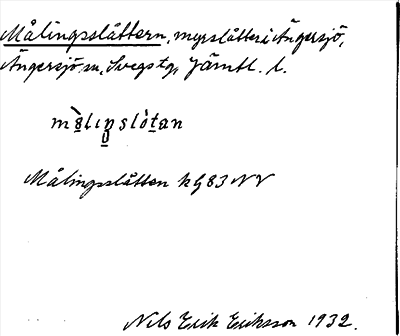 Målingsslåttern, myrslåtter i Ängersjö,
Ängersjö sn, Svegs tg, Jämtl. l.
Målingsslåtten k G83 NV
Nils Erik Eriksson 1932.